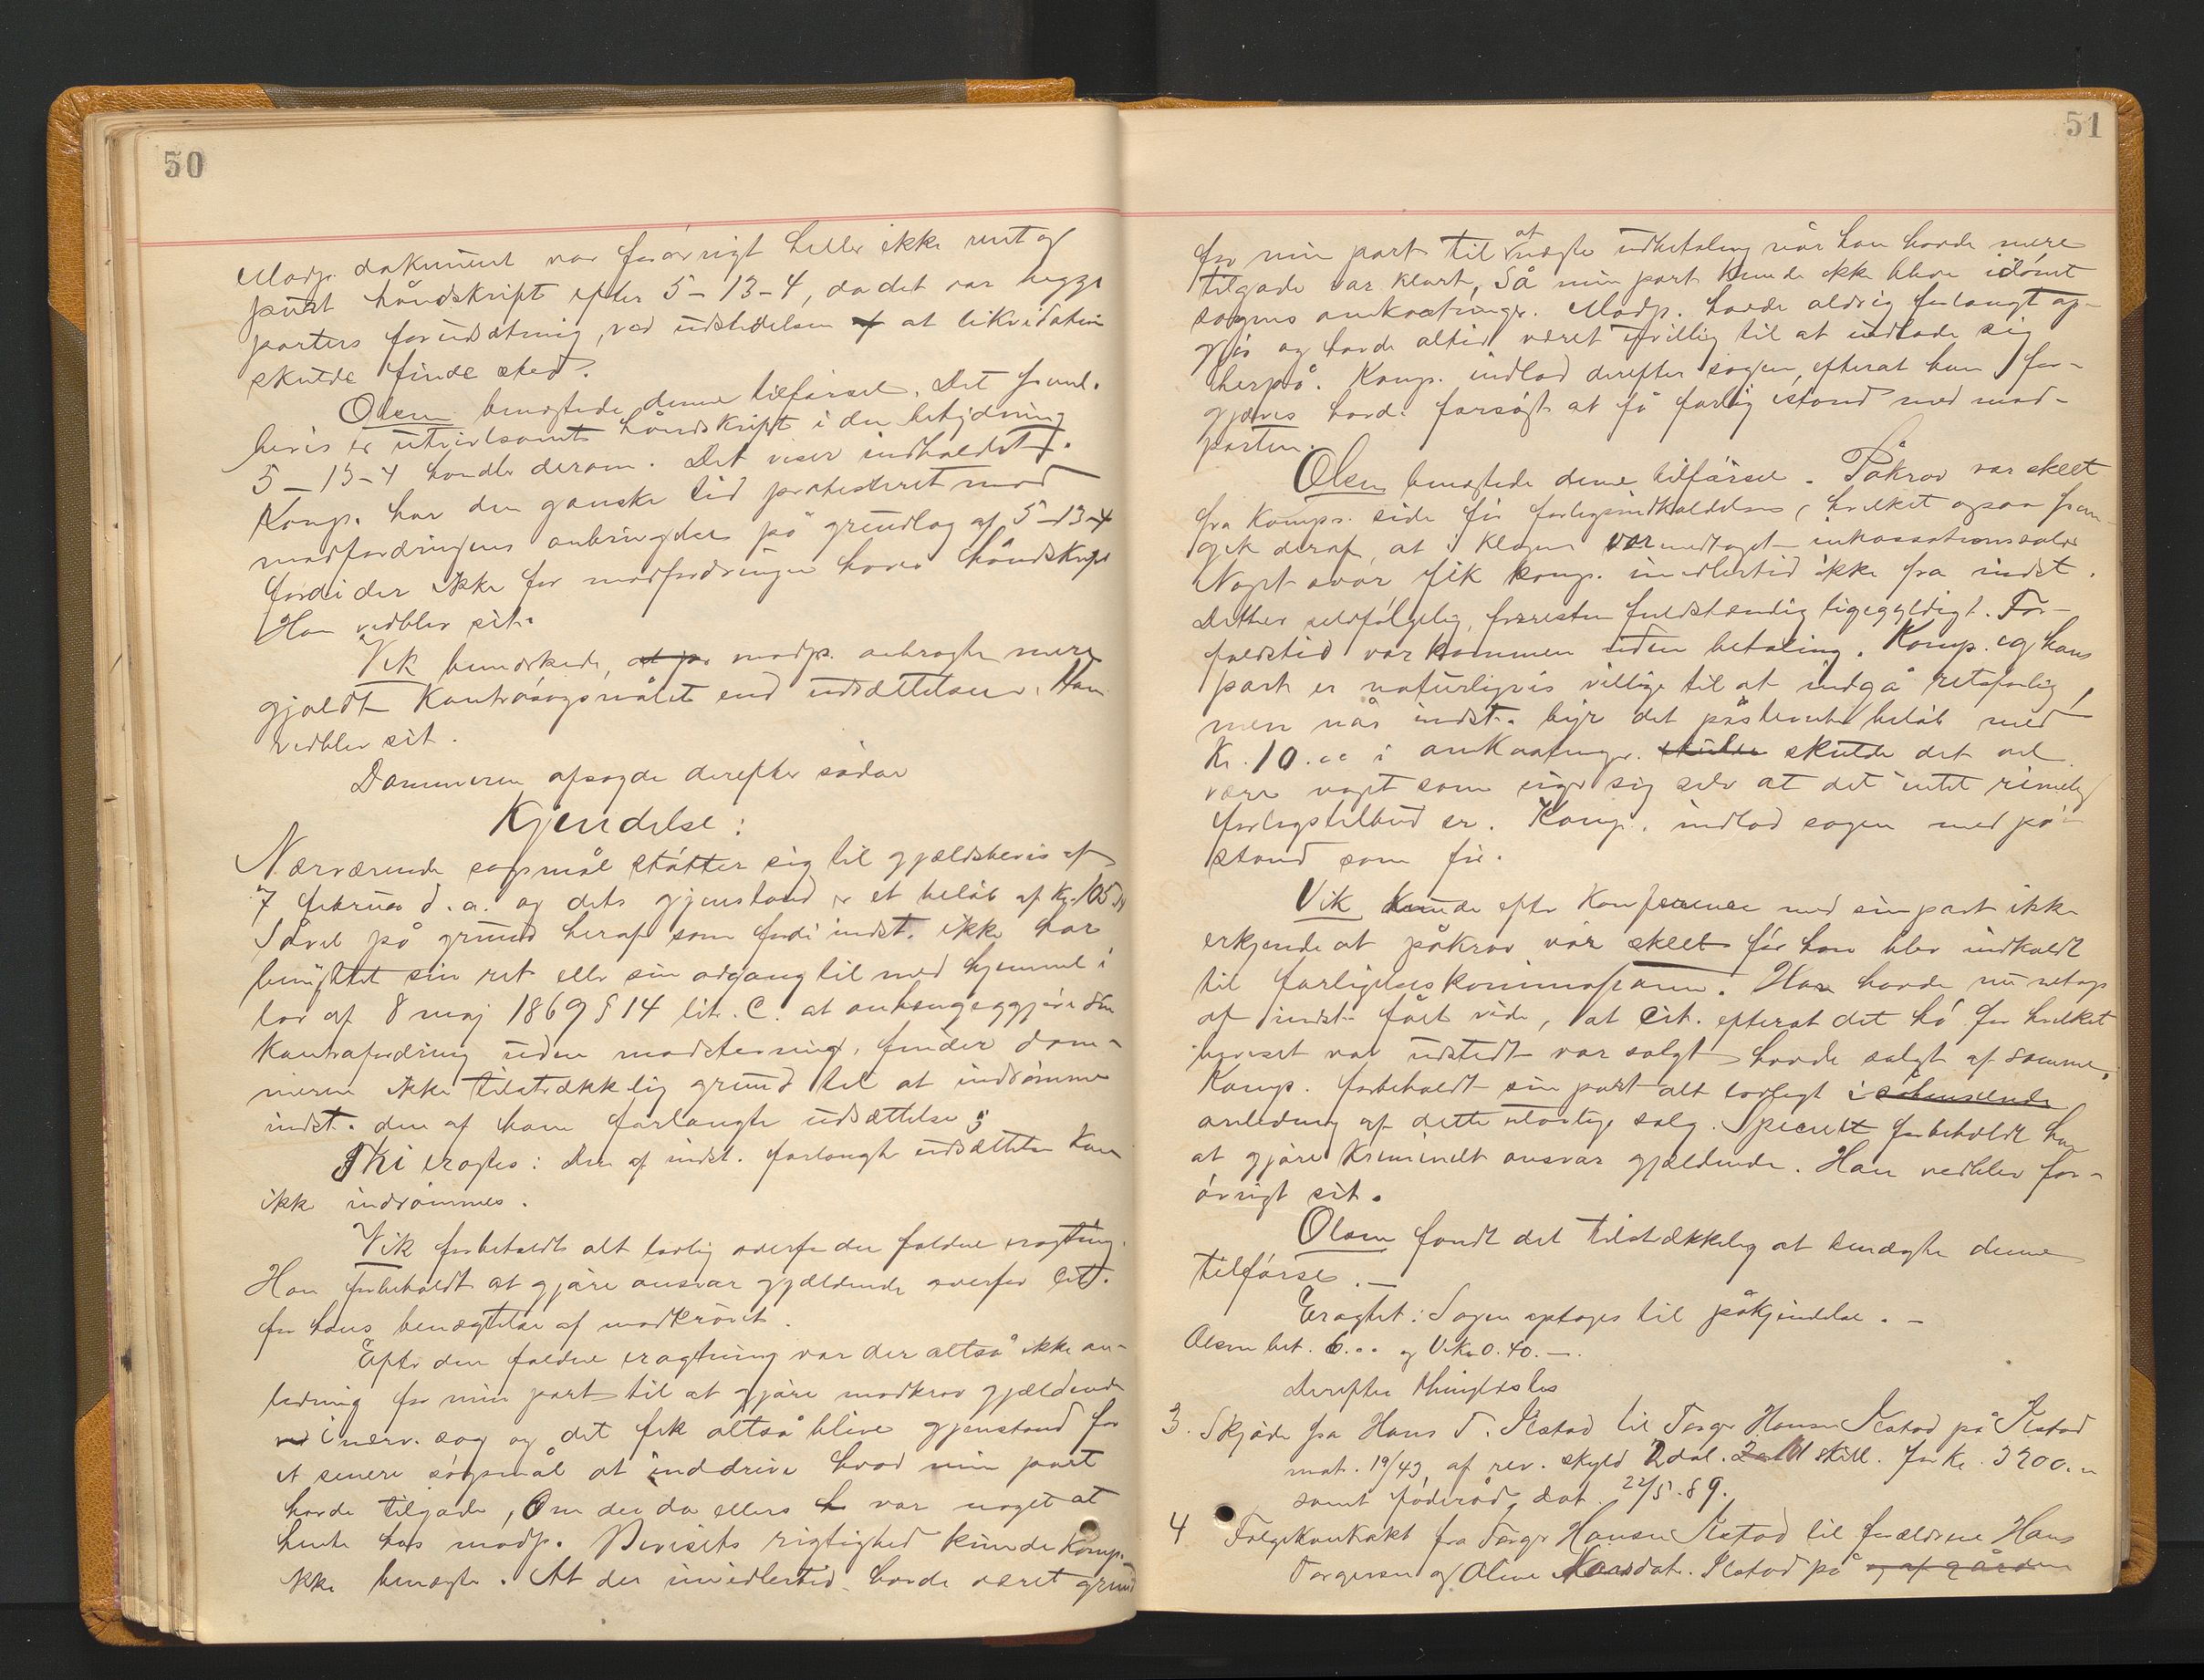 50
Modp. dokument var forøvrigt heller ikke rent og
purt håndskrift efter 5-13-4, da det var begge
parters forudsætning, ved udstedelsen at likvidation
skulde finde sted.
Olsen benægtede denne tilførsel. Det freml.
bevis er utvivlsomt håndskrift i den betydning
5-13-4 handler derom. Det viser indholdet.
Komp. har den ganske tid protesteret mod
modfordringens anbringelse på grundlag af 5-13-4
fordi der ikke for modfordringen haves håndskrift
Han vedblev sit.
Vik bemærkede, modp. anbragte mere
gjaldt Kontrasøgsmålet end udsættelsen. Han
vedblev sit.
Dommeren afsagde derefter sådan
Kjendelse:
Nærværende søgsmål støtter sig til gjældsbevis af
7 februar d.a. og dets gjenstand er et beløb af Kr. 105
Såvel på grund heraf som fordi indst. ikke har
benyttet sin ret eller sin adgang til med hjemmel i
lov af 8 maj 1869 § 14 lit. C. at anhængeggjøre sin
Kontrafordring uden modstevning, finder dom-
meren ikke tilstrækkelig grund til at indrømme
indst. den af ham forlangte udsættelse;
Thi eragtes: Den af indst. forlangte udsættelse kan
ikke indrømmes.
Vik forbeholdt alt lovlig overfor den faldne eragtning.
Han forbeholdt at gjøre ansvar gjældende overfor cit.
for hans benægtelse af modkravet.
Efter den faldne eragtning var der altså ikke an-
ledning for min part til at gjøre modkrav gjældende
i nærv. sag og det fik altså blive gjenstand for
et senere søgsmål at inddrive hvad min part
havde tilgode, Om der da ellers var noget at
hente hos modp. Bevisets rigtighed kunde Komp.
ikke benægte. At der imidlertid havde været grund
51
for min part til at nægte udbetaling når han havde mere
tilgode var klart, Så min part kunde ikke blive idømt
sagens omkostninger. Modp. havde aldrig forlangt op-
gjør og havde altid været uvillig til at indlade sig
herpå. Komp. indlod derefter sagen, efterat han for-
gjæves havde forsøgt at få forlig istand med mod-
parten.
Olsen benægtede denne tilførsel. Påkrav var skeet
fra Komps. side før forligsindkaldelsen, hvilket ogsaa frem-
gik deraf, at i klagen var medtaget inkassationssalær
Noget svar fik komp. imidlertid ikke fra indst.
Dette er selvfølgelig forresten fuldstændig ligegyldigt. For-
faldstid var kommen uden betaling. Komp. og hans
part er naturligvis villige til at indgå retsforlig,
men når indst. byr det påstevnte beløb med
Kr. 10.00 i omkostninger. skulde det vel
være noget som siger sig selv at det intet rimelig
forligstilbud er. Komp. indlod sagen med på-
stand som før.
Vik kunde efter Konference med sin part ikke
erkjende at påkrav var skeet før han blev indkaldt
til forligelseskommissionen. Han havde nu netop
af indst. fået vide, at Cit. efterat det hø for hvilket
beviset var udstedt var solgt havde solgt af samme.
Komp. forbeholdt sin part alt lovligt i
anledning af dette ulovlige salg. Specielt forbeholdt han
at gjøre kriminelt ansvar gjældende. Han vedblev for-
øvrigt sit.
Olsen fandt det tilstrækkelig at benægte denne
tilførsel. —
Eragtet: Sagen optages til påkjendelse. —
Olsen bet. 6.00 og Vik 0.40. —
Derefter thinglæstes
3. Skjøde fra Hans T. til Torger Hansen på
mat. 19/43, af rev. skyld 2 dal. skill. for Kr. 3200.00
samt føderåd, dat. 22/5.89.
4 Følgekontrakt fra Torger Hansen til forældrene Hans
Torgersen og Oline på og af gården